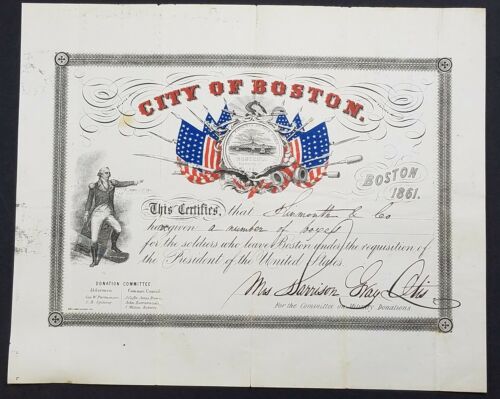 CITY OF BOSTON.
BOSTON
1861.
This Certifies, that & Co
have given a number of boxes
for the soldiers who leave Boston under the requisition of
the President of the United States.
DONATION COMMITTEE
Aldermen. Common Council.
Mrs Harrison Gray Otis
For the Committee on Military Donations.